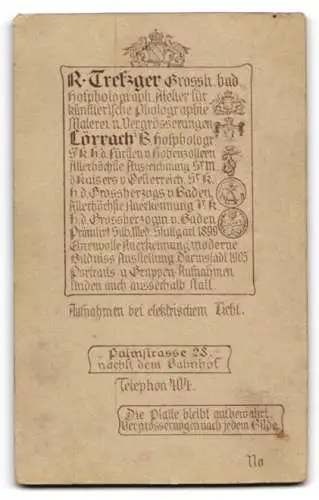 R. Trefzger Grossh. bad.
Hofphotograph. Atelier für
künstlerische Photographie
Malerei u. Vergrösserungen
Lörrach B. Hofphologr.
Sr. K. H. d. Fürsten v. Hohenzollern
Allerhöchste Auszeichnung Sr. M.
d. Kaisers v. Oesterreich, Sr. K.
H. d. Grossherzogs v. Baden
Allerhöchste Anerkennung Ir. K.
H. d. Grossherzogin v. Baden
Prämiirt Silb. Med. Stuttgart 1896
Ehrenvolle Anerkennung moderne
Bildniss Ausstellung Darmstadt 1905
Portraits u. Gruppen-Aufnahmen
finden auch ausserhalb statt.
Aufnahmen bei elektrischem Licht.
Palmstrasse 28.
nächst dem Bahnhof
Telephon 404.
Die Platte bleibt aufbewahrt.
Vergrösserungen nach jedem Bilde.
No